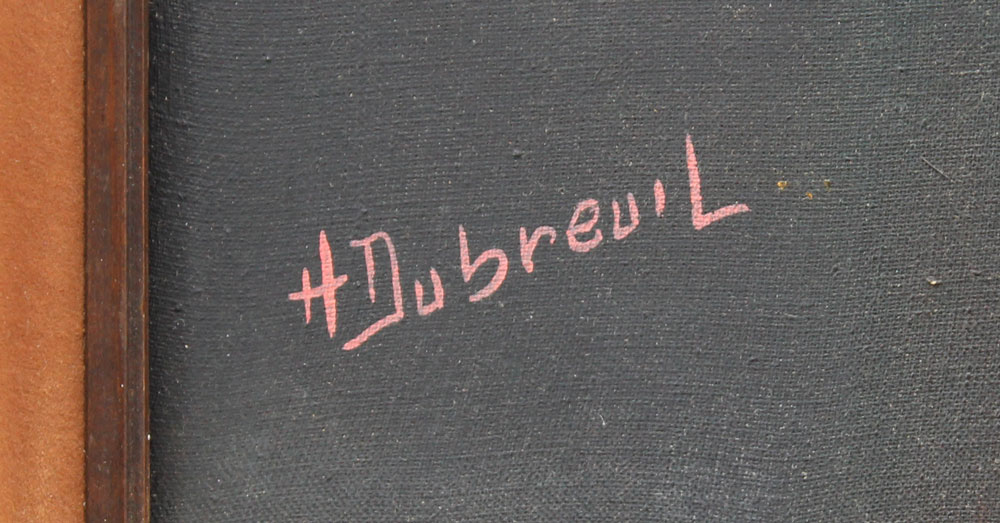 H Dubreuil